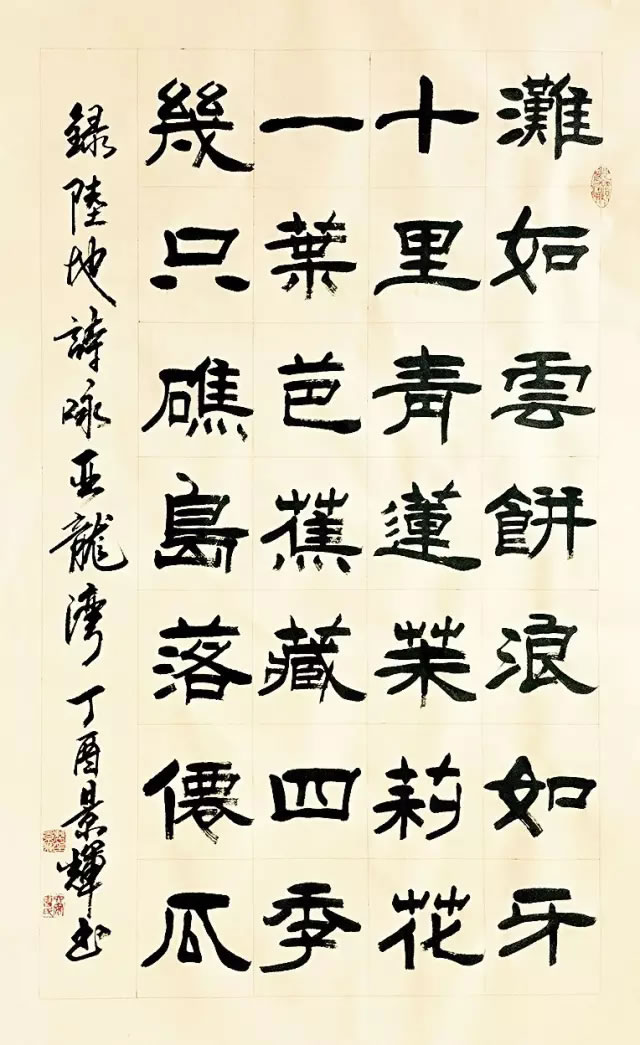 灘如雲餅浪如牙
十里青蓮茉莉花
一葉芭蕉藏四季
幾只礁島落僊瓜
録陸地詩咏亚龍湾丁酉景輝书